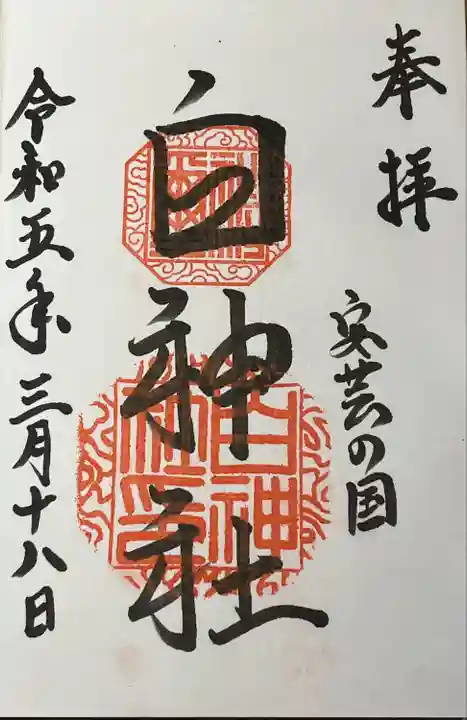 奉拝
安芸の国
白神社
白神社印
令和五年三月十八日